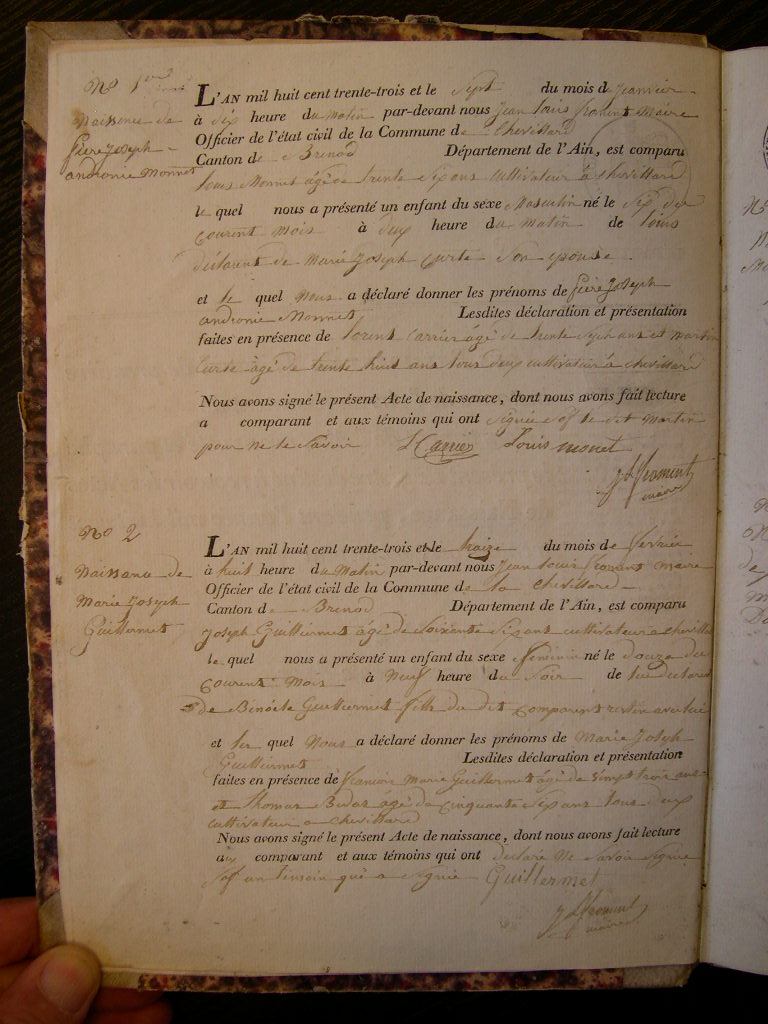 No 1er
Naissance de
pierre Joseph
andronie Monnet
L'AN mil huit cent trente-trois et le Sept du mois de Jeanvier
à dix heure du Matin par-devant nous Jean Louis froment Maire
Officier de l'état civil de la Commune de Chevillard
Canton de Brenod Département de l'Ain, est comparu
Louis Monnet âgé de trente Six ans cultivateur à Chevillard
le quel nous a présenté un enfant du sexe Masculin né le Six du
courent mois à deux heure du Matin de Louis
déclarent de Marie Joseph curte Son epouse
et le quel Nous a déclaré donner les prénoms de
andronie Monnet Lesdites déclaration et présentation
faites en présence de Lorent Carrier âgé de trente Sept ans et Martin
Curte âgé de trente huit ans tous deux cultivateur à chevillard
Nous avons signé le présent Acte de naissance, dont nous avons fait lecture
a comparant et aux témoins qui ont Signée sof le dit Martin
pour ne le Savoir L Carrier Louis monet
J L froment
maire
No 2
Naissance de
Marie Joseph
Guillermet
L'AN mil huit cent trente-trois et le traize du mois de fevrier
à huit heure du Matin par-devant nous Jean Louis froment maire
Officier de l'état civil de la Commune de la Chevillard
Canton de Brenod Département de l'Ain, est comparu
Joseph Guillermet âgé de Soixente Six ans cultivateur a chevillard
le quel nous a présenté un enfant du sexe féminin né le douze du
courent Mois à Neuf heure du Soir de
De Benoite Guillermet fille du dit comparent
et le quel Nous a déclaré donner les prénoms de Marie Joseph
Guillermet Lesdites déclaration et présentation
faites en présence de françois Marie Guillermet âgé de vingt trois ans
et thomas âgé de cinquante Six ans tous deux
cultivateur a chevillard
Nous avons signé le présent Acte de naissance, dont nous avons fait lecture
aux comparant et aux témoins qui ont déclaré Ne Savoir Signer
Sof un temoin qui a Signée Guillermet
J L froment
maire